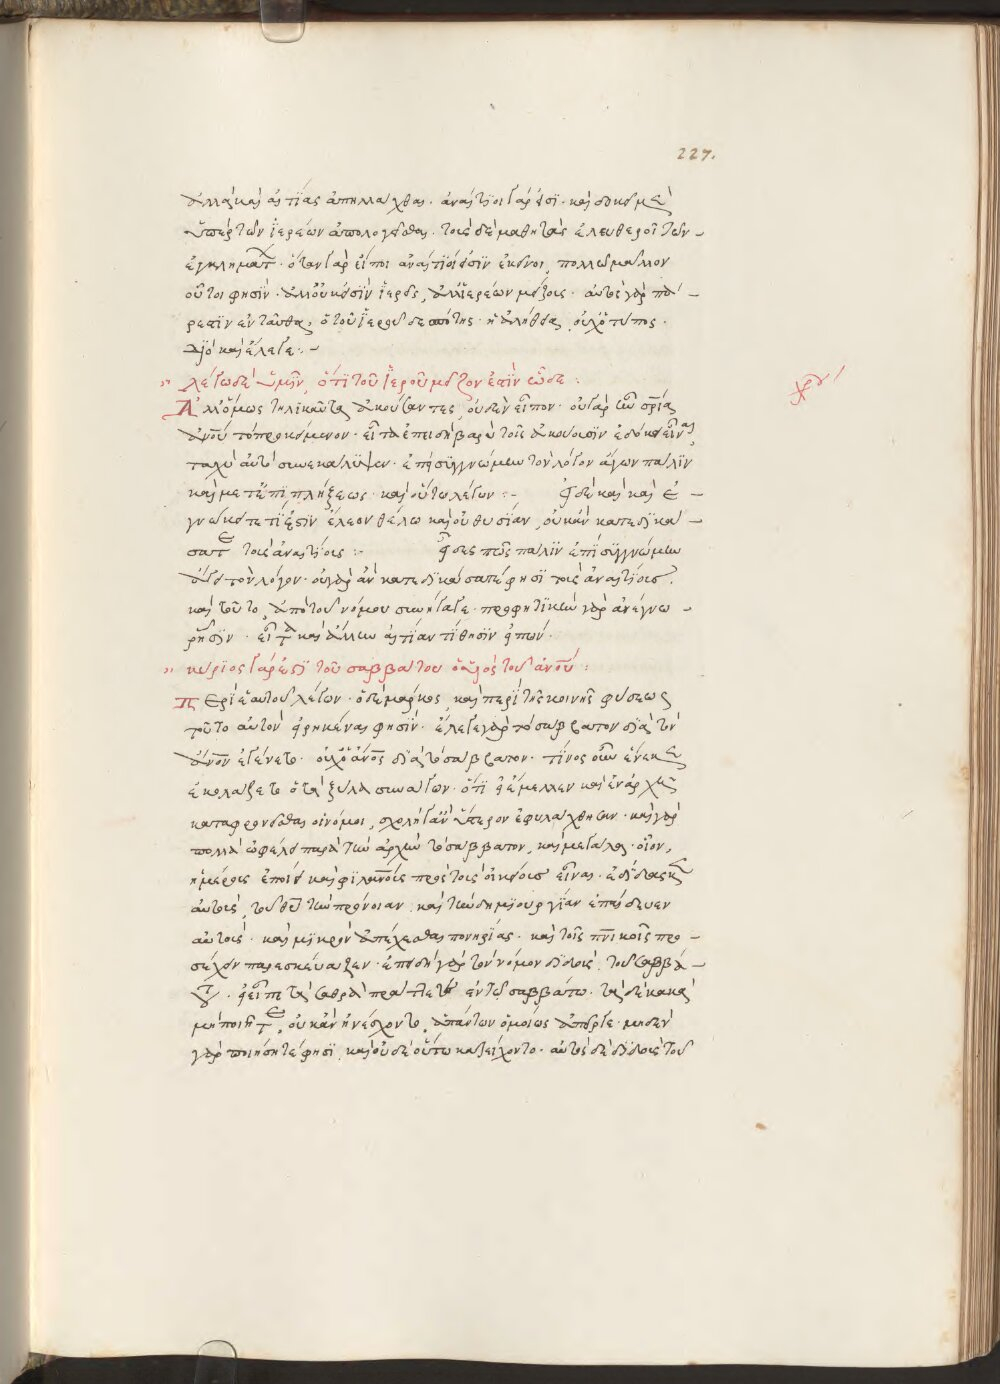 227.
ἀλλὰ καὶ αἰτίας ἀπηλλάχθαι. ἀναίτιοι γάρ εἰσι. καὶ οὐκ οἶμαι
ὑπὲρ τῶν ἱερέων ἀπολογεῖσθαι. τοὺς δὲ μαθητὰς ἐλευθεροῖ τῶν
ἐγκλημάτ. ὅταν γὰρ εἴποι ἀναίτιοί εἰσιν ἐκεῖνοι, πολλῷ μᾶλλον
οὗτοι φησίν. ἀλλ' οὐκ εἰσὶν ἱερεῖς, ἀλλ' ἱερέων μείζους. αὐτὸς γὰρ πά
ρεστιν ἐνταῦθα, ὁ τοῦ ἱεροῦ δεσπότης. ἡ ἀλήθεια, οὐχ ὁ τύπος.
διὸ καὶ ἔλεγε :-
λέγω δὲ ὑμῖν, ὅτι τοῦ ἱεροῦ μεῖζόν ἐστιν ὧδε :
Ἀλλ' ὅμως τηλικαῦτα ἀκούσαντες, οὐδὲν εἶπον. οὐ γὰρ ἦν σρία
ἀνου τὸ προκείμενον. εἶτα ἐπειδὴ βαρὺ τοῖς ἀκούουσιν ἐδόκει εἶναι,
ταχὺ αὐτὸ συνεκάλυψεν. ἐπὶ συγγνώμην τὸν λόγον ἄγων πάλιν
καὶ μετ' ἐπιπλήξεως. καὶ οὕτω λέγων :- εἰ δὲ καὶ καὶ ἐ
γνώκειτε τί ἐστιν ἔλεον θέλω καὶ οὐ θυσίαν, οὐκ ἂν κατεδικά
σατε τοὺς ἀναιτίους :- εἶδες πῶς πάλιν ἐπὶ συγγνώμην
ἄγει τὸν λόγον. οὐ γὰρ ἂν κατεδικάσατέ φησι τοὺς ἀναιτίους.
καὶ τοῦτο, ἀπὸ τοῦ νόμου συνήγαγε. προφητικὴν γὰρ ἀνέγνω
ρῆσιν. εἶτα καὶ ἄλλην αἰτίαν τίθησιν εἰπών.
κύριος γάρ ἐστι τοῦ σαββάτου ὁ υἱὸς τοῦ ἀνου :
Περὶ ἑαυτοῦ λέγων. ὁ δὲ μάρκος, καὶ περὶ τῆς κοινῆς φύσεως
τοῦτο αὐτὸν εἰρηκέναι φησίν. ἔλεγε γὰρ τὸ σάββατον διὰ τὸν
ἄνον ἐγένετο. οὐχ ὁ ἄνος διὰ τὸ σάββατον. τίνος οὖν ἕνεκεν
ἐκολάζετο ὁ τὰ ξύλα συνάγων. ὅτι εἰ ἔμελλεν καὶ ἐν ἀρχῇ
καταφρονεῖσθαι οἱ νόμοι, σχολῇ γ' ἂν ὕστερον ἐφυλάχθησαν. καὶ γὰρ
πολλὰ ὠφέλει παρὰ τὴν ἀρχὴν τὸ σάββατον, καὶ μεγάλα. οἷον,
ἡμέρους ἐποίει καὶ φιλανους πρὸς τοὺς οἰκείους εἶναι. ἐδίδασκεν
αὐτοὺς, τοῦ θυ τὴν πρόνοιαν, καὶ τὴν δημιουργίαν ἐπαίδευεν
αὐτούς. καὶ μικρὸν ἀπέχεσθαι πονηρίας. καὶ τοῖς πνικοῖς προ
σέχειν παρεσκεύαζεν. ἐπειδὴ γὰρ τὸν νόμον διδοὺς, τοῦ σαββά
του. εἰ εἶπε τὰ ἀγαθὰ πράττετε ἐν τῷ σαββάτῳ. τὰ δὲ κακὰ
μὴ ποιῆτε, οὐκ ἂν ἠνέσχοντο, ἁπάντων ὁμοίως ἀπεῖργε. μηδὲν
γὰρ ποιήσητέ φησι, καὶ οὐδὲ οὕτω κατείχοντο. αὐτὸς δὲ διδοὺς τοῦ